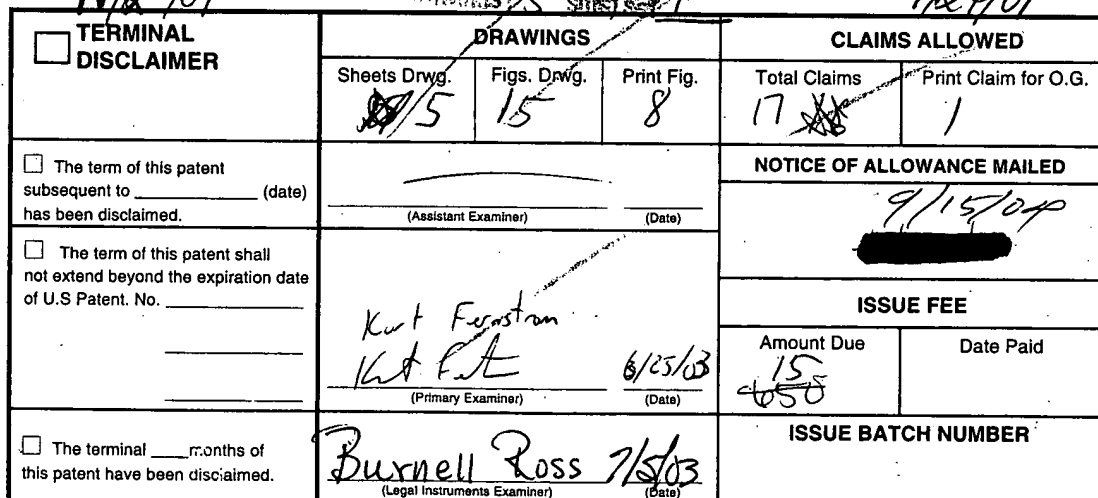 TERMINAL DISCLAIMER
DRAWINGS
CLAIMS ALLOWED
Sheets Drwg.
Figs. Drwg.
Print Fig.
Total Claims
Print Claim for O.G.
15
15
8
17
1
The term of this patent
subsequent to ____________ (date)
has been disclaimed.
(Assistant Examiner)
(Date)
NOTICE OF ALLOWANCE MAILED
9/15/04
The term of this patent shall
not extend beyond the expiration date
of U.S Patent. No. ____________
Kurt Fernstrom
6/25/03
(Primary Examiner)
(Date)
ISSUE FEE
Amount Due
Date Paid
15
650
The terminal ____months of
this patent have been disclaimed.
Burnell Ross 7/5/03
(Legal Instruments Examiner)
(Date)
ISSUE BATCH NUMBER